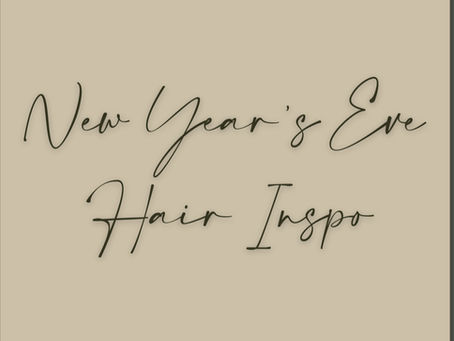 New Year's Eve
Hair Inspo